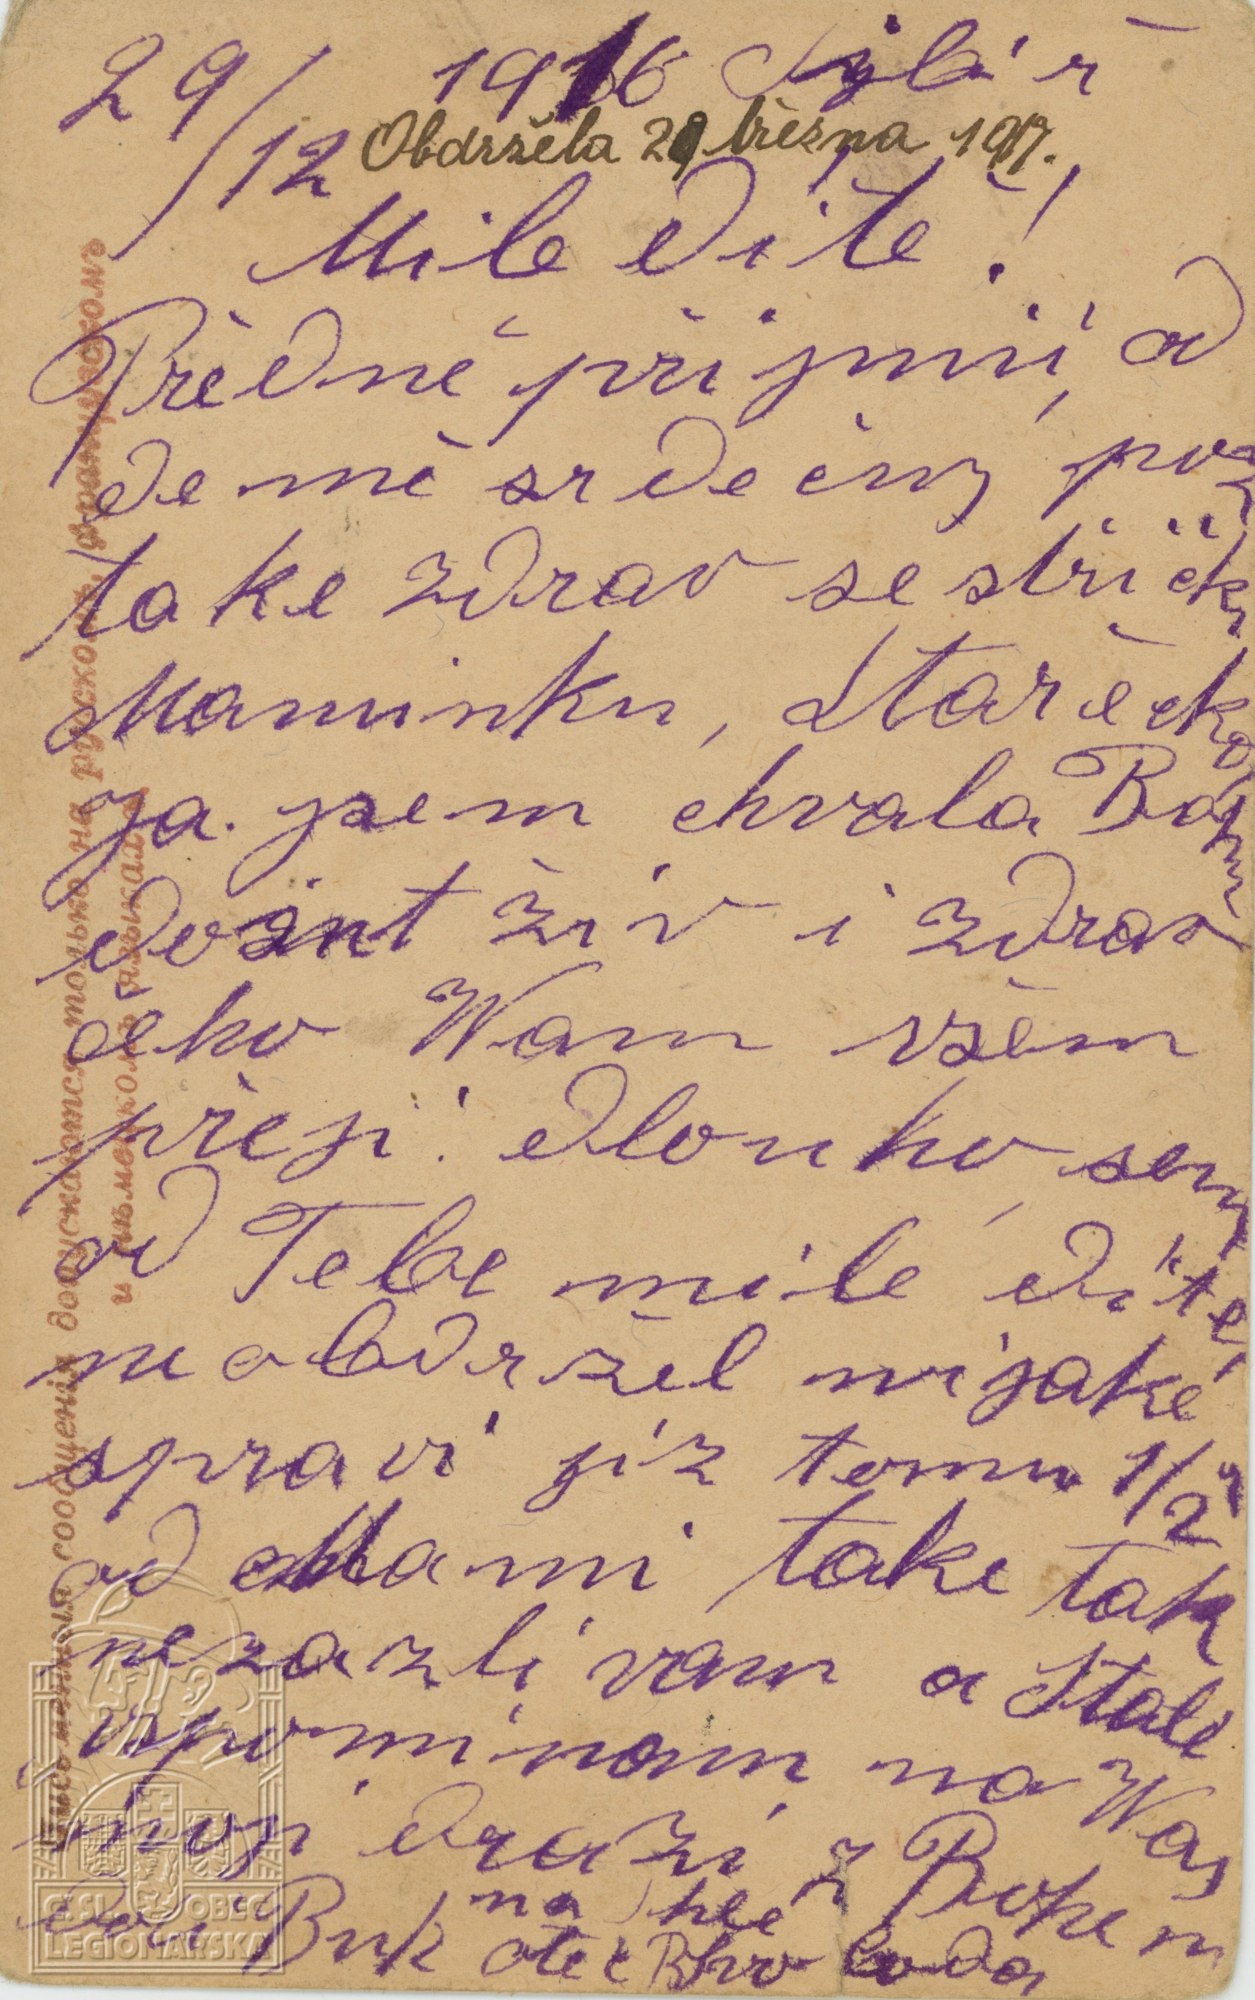 29/12 1916 Sibiř
Obdržela 29 března 1917.
Mile Dite!
Předně přijmij od
de mě srdečny poz
take zdrav sestřičk
Maminku, Starečk
ja jsem chvala Bohu
živ i zdrav
čeho Wam všem
přeji. Dlouho sem
od Tebe mile Dítě
neobdržel nijaké
spravi již tomu 1/2
od Mami take tak
nezazlivam a Stale
vspominam na Was
moji drazí z Bohem
na shle
Buk otec
Письменныя сообщенія допускаются только на русскомъ, французскомъ
и нѣмецкомъ языкахъ.
ČS. OBEC
LEGIONÁŘSKÁ